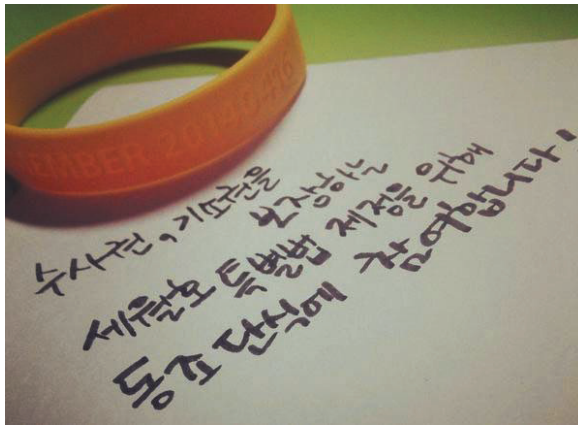 EMBER 20140416
수사권, 기소권을
보장하는
세월호 특별법 제정을 위해
동조 단식에 참여합니다!